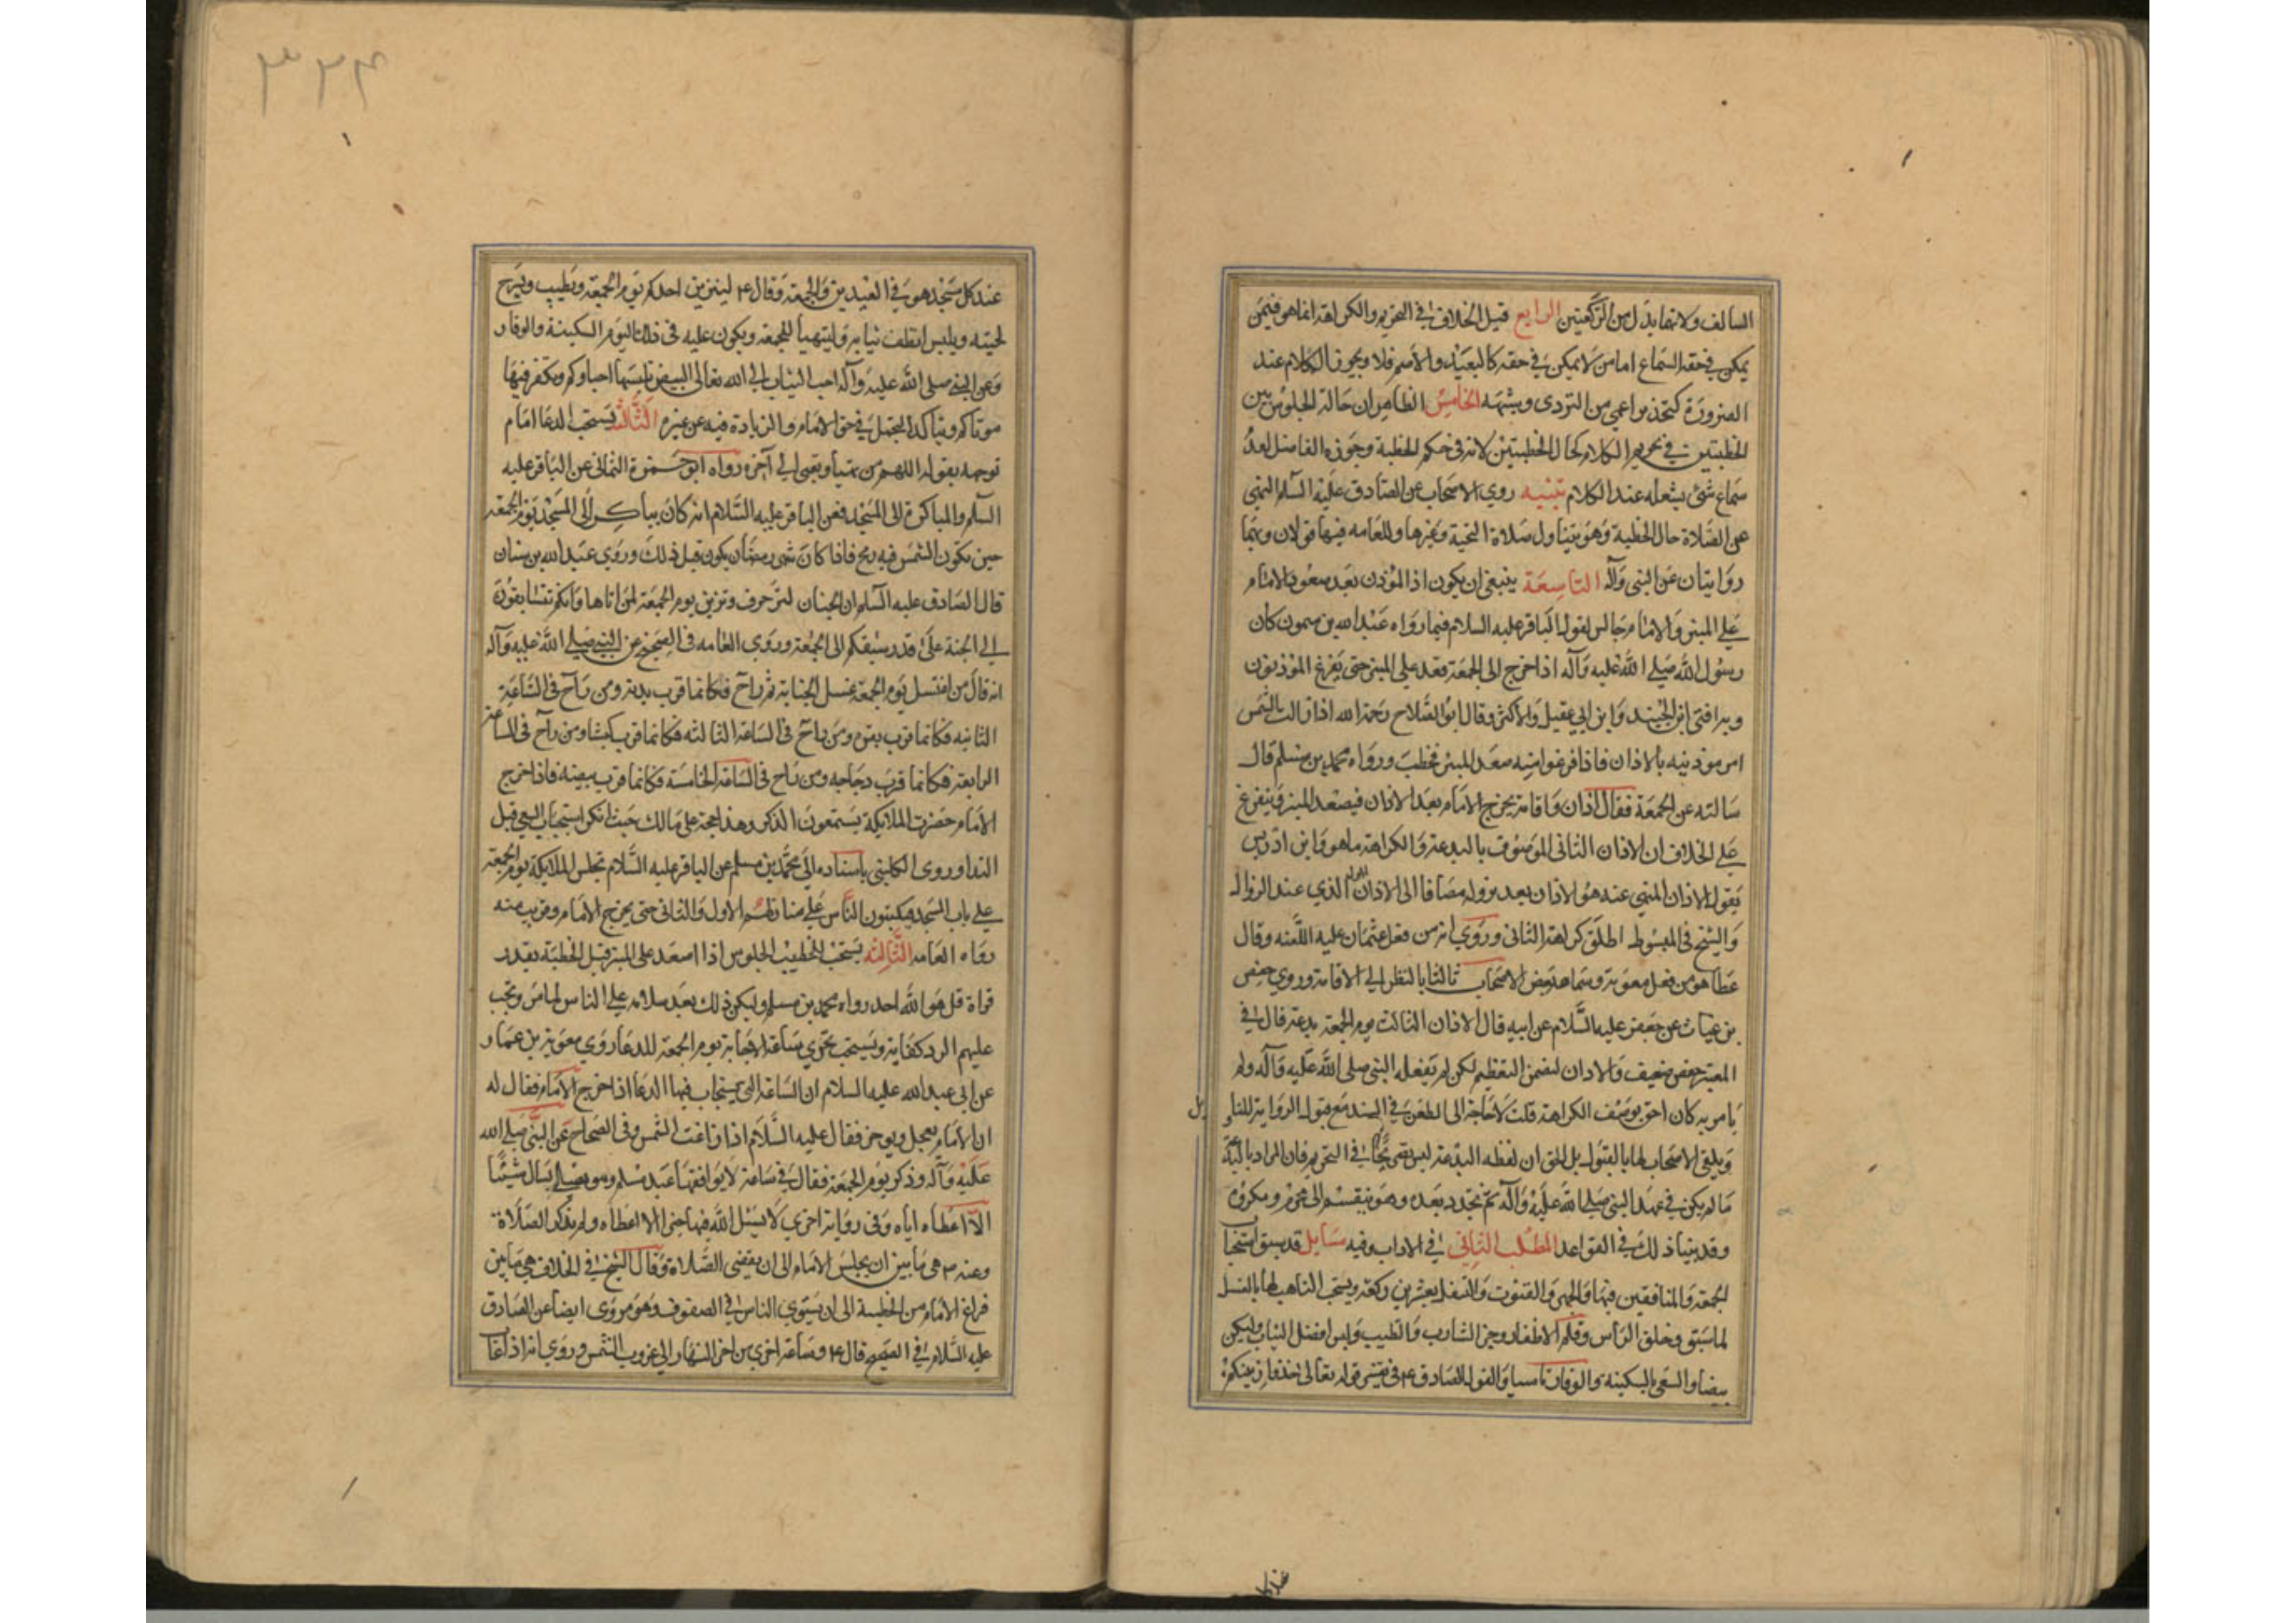 السالف ولانهما بدل من الركعتين الرابع قيل الخلاف في التحريم والكراهة انما هو فيمن
يمكن في حقه السماع اما من لا يمكن في حقه كالبعيد والاصم فلا ويجوز الكلام عند
الضرورة كتحذير اعمى من التردي وشبهه الخامس الظاهر ان حالة الجلوس بين
الخطبتين في تحريم الكلام كحال الخطبتين لانه في حكم الخطبة وجوزه الفاضل لعدم
سماع شئ يشغله عند الكلام تنبيه روي الاصحاب عن الصادق عليه السلم النهي
عن الصلاة حال الخطبة وهو يتناول صلاة التحية وغيرها وللعامه فيها قولان وبهما
روايتان عن النبي وآله التاسعة ينبغي ان يكون اذا المؤذن بعد صعود الامام
على المنبر والامام جالس لقول الباقر عليه السلام فيما رواه عبد الله بن ميمون كان
رسول الله صلى الله عليه وآله اذا خرج الى الجمعة قعد على المنبر حتى يفرغ المؤذنون
وبه افتى ابن الجنيد وابن ابي عقيل والاكثر وقال ابو الصلاح رحمه الله اذا زالت الشمس
امر مؤذنيه بالاذان فاذا فرغوا منه صعد المنبر فخطب ورواه محمد بن مسلم قال
سالته عن الجمعة فقال اذان واقامة يخرج الامام بعد الاذان فيصعد المنبر ويتفرع
على الخلاف ان الاذان الثاني الموصوف بالبدعة والكراهة ما هو وابن ادريس
يقول الاذان المنهي عنه هو الاذان بعد نزوله مضافا الى الاذان الاول الذي عند الزوال
والشيخ في المبسوط اطلق كراهة الثاني وروي انه من فعل عثمان عليه اللعنه وقال
عطا هو من فعل معوية وسماه بعض الاصحاب ثالثا بالنظر الى الاقامة وروي حفص
بن غياث عن جعفر عليه السلام عن ابيه قال الاذان الثالث يوم الجمعة بدعة قال في
المعتبر حفص ضعيف والاذان لتضمن التعظيم لكن لم يفعله النبي صلى الله عليه وآله ولم
يامر به كان احق بوصف الكراهة قلت لا حاجة الى الطعن في السند مع قبول الرواية للتاويل
وتلقي الاصحاب لها بالقبول بل الحق ان لفظه البدعة ليس بصريحا في التحريم فان المراد بالبدعة
ما لم يكن في عهد النبي صلى الله عليه وآله ثم تجدد بعده وهو ينقسم الى محرم ومكروه
وقد بينا ذلك في القواعد المطلب الثاني في الاداب وفيه مسايل قد سبق استحباب
الجمعة والمنافقين فيها والجهر والقنوت والتنفل بعشرين ركعة ويستحب التاهب لها بالغسل
لما سبق وحلق الراس وقلم الاظفار وجز الشارب والطيب ولبس افضل الثياب وليكن
بيضا والسعي بالسكينة والوقار تاسيا ولقول الصادق ع في تفسير قوله تعالى خذوا زينتكم
عند كل
٣٢٤
عند كل مسجد هو في العيدين والجمعة وقال ع ليتزين احدكم يوم الجمعة ويطيب ويسرح
لحيته ويلبس انظف ثيابه وليتهيا للجمعة ويكون عليه في ذلك اليوم السكينة والوقار
وعن النبي صلى الله عليه وآله احب الثياب الى الله تعالى البيض يلبسها احياوكم ويكفن فيها
موتاكم ويتاكد التجمل في حق الامام والزيادة فيه عن غيره الثالثه يستحب الدعا امام
توجهه بقوله اللهم من تهيا وتعبى الى آخره رواه ابو حمزة الثمالي عن الباقر عليه
السلم والمباكرة الى المسجد فعن الباقر عليه السلام انه كان يباكر الى المسجد يوم الجمعة
حين تكون الشمس قيد رمح فاذا كان شهر رمضان يكون قبل ذلك وروي عبد الله بن سنان
قال الصادق عليه السلم ان الجنان لتزخرف وتزين يوم الجمعة لمن اتاها وانكم تتسابقون
الى الجنة على قدر سبقكم الى الجمعة وروي العامه في الصحيح عن النبي صلى الله عليه وآله
انه قال من اغتسل يوم الجمعة غسل الجنابة ثم راح فكانما قرب بدنة ومن راح في الساعة
الثانيه فكانما قرب بقرة ومن راح في الساعة الثالثه فكانما قرب كبشا ومن راح في الساعة
الرابعة فكانما قرب دجاجه ومن راح في الساعة الخامسة فكانما قرب بيضه فاذا خرج
الامام حضرت الملايكة يستمعون الذكر وهذا حجة على مالك حيث انكر استحباب السعي قبل
الندا وروى الكليني باسناده الى محمد بن مسلم عن الباقر عليه السلام تجلس الملايكة يوم الجمعة
على باب المسجد فيكتبون الناس على منازلهم الاول والثاني حتى يخرج الامام وقريب منه
رواه العامه الثالثه يستحب للخطيب الجلوس اذا صعد على المنبر قبل الخطبة بقدر
قراة قل هو الله احد رواه محمد بن مسلم وليكن ذلك بعد سلامه على الناس لما مر ويجب
عليهم الرد كفاية ويستحب تحري ساعة الاجابة يوم الجمعة للدعا روي معوية بن عمار
عن ابي عبد الله عليه السلام ان الساعة التي يستجاب فيها الدعا اذا خرج الامام فقال له
ان الامام يعجل ويوخر فقال عليه السلام اذا زاغت الشمس وفي الصحاح عن النبي صلى الله
عليه وآله وذكر يوم الجمعة فقال في ساعة لا يوافقها عبد مسلم وهو يصلي يسال شيئا
الا اعطاه اياه وفي رواية اخرى لا يسئل الله فيها خيرا الا اعطاه ولم يذكر الصلاة
وعنه ص هي ما بين ان يجلس الامام الى ان يقضى الصلاة وقال الشيخ في الخلاف هي ما بين
فراغ الامام من الخطبة الى ان يستوي الناس في الصفوف وهو مروى ايضا عن الصادق
عليه السلام في الصحيح قال ع وساعة اخرى من اخر النهار الى غروب الشمس وروي انه اذا غاب